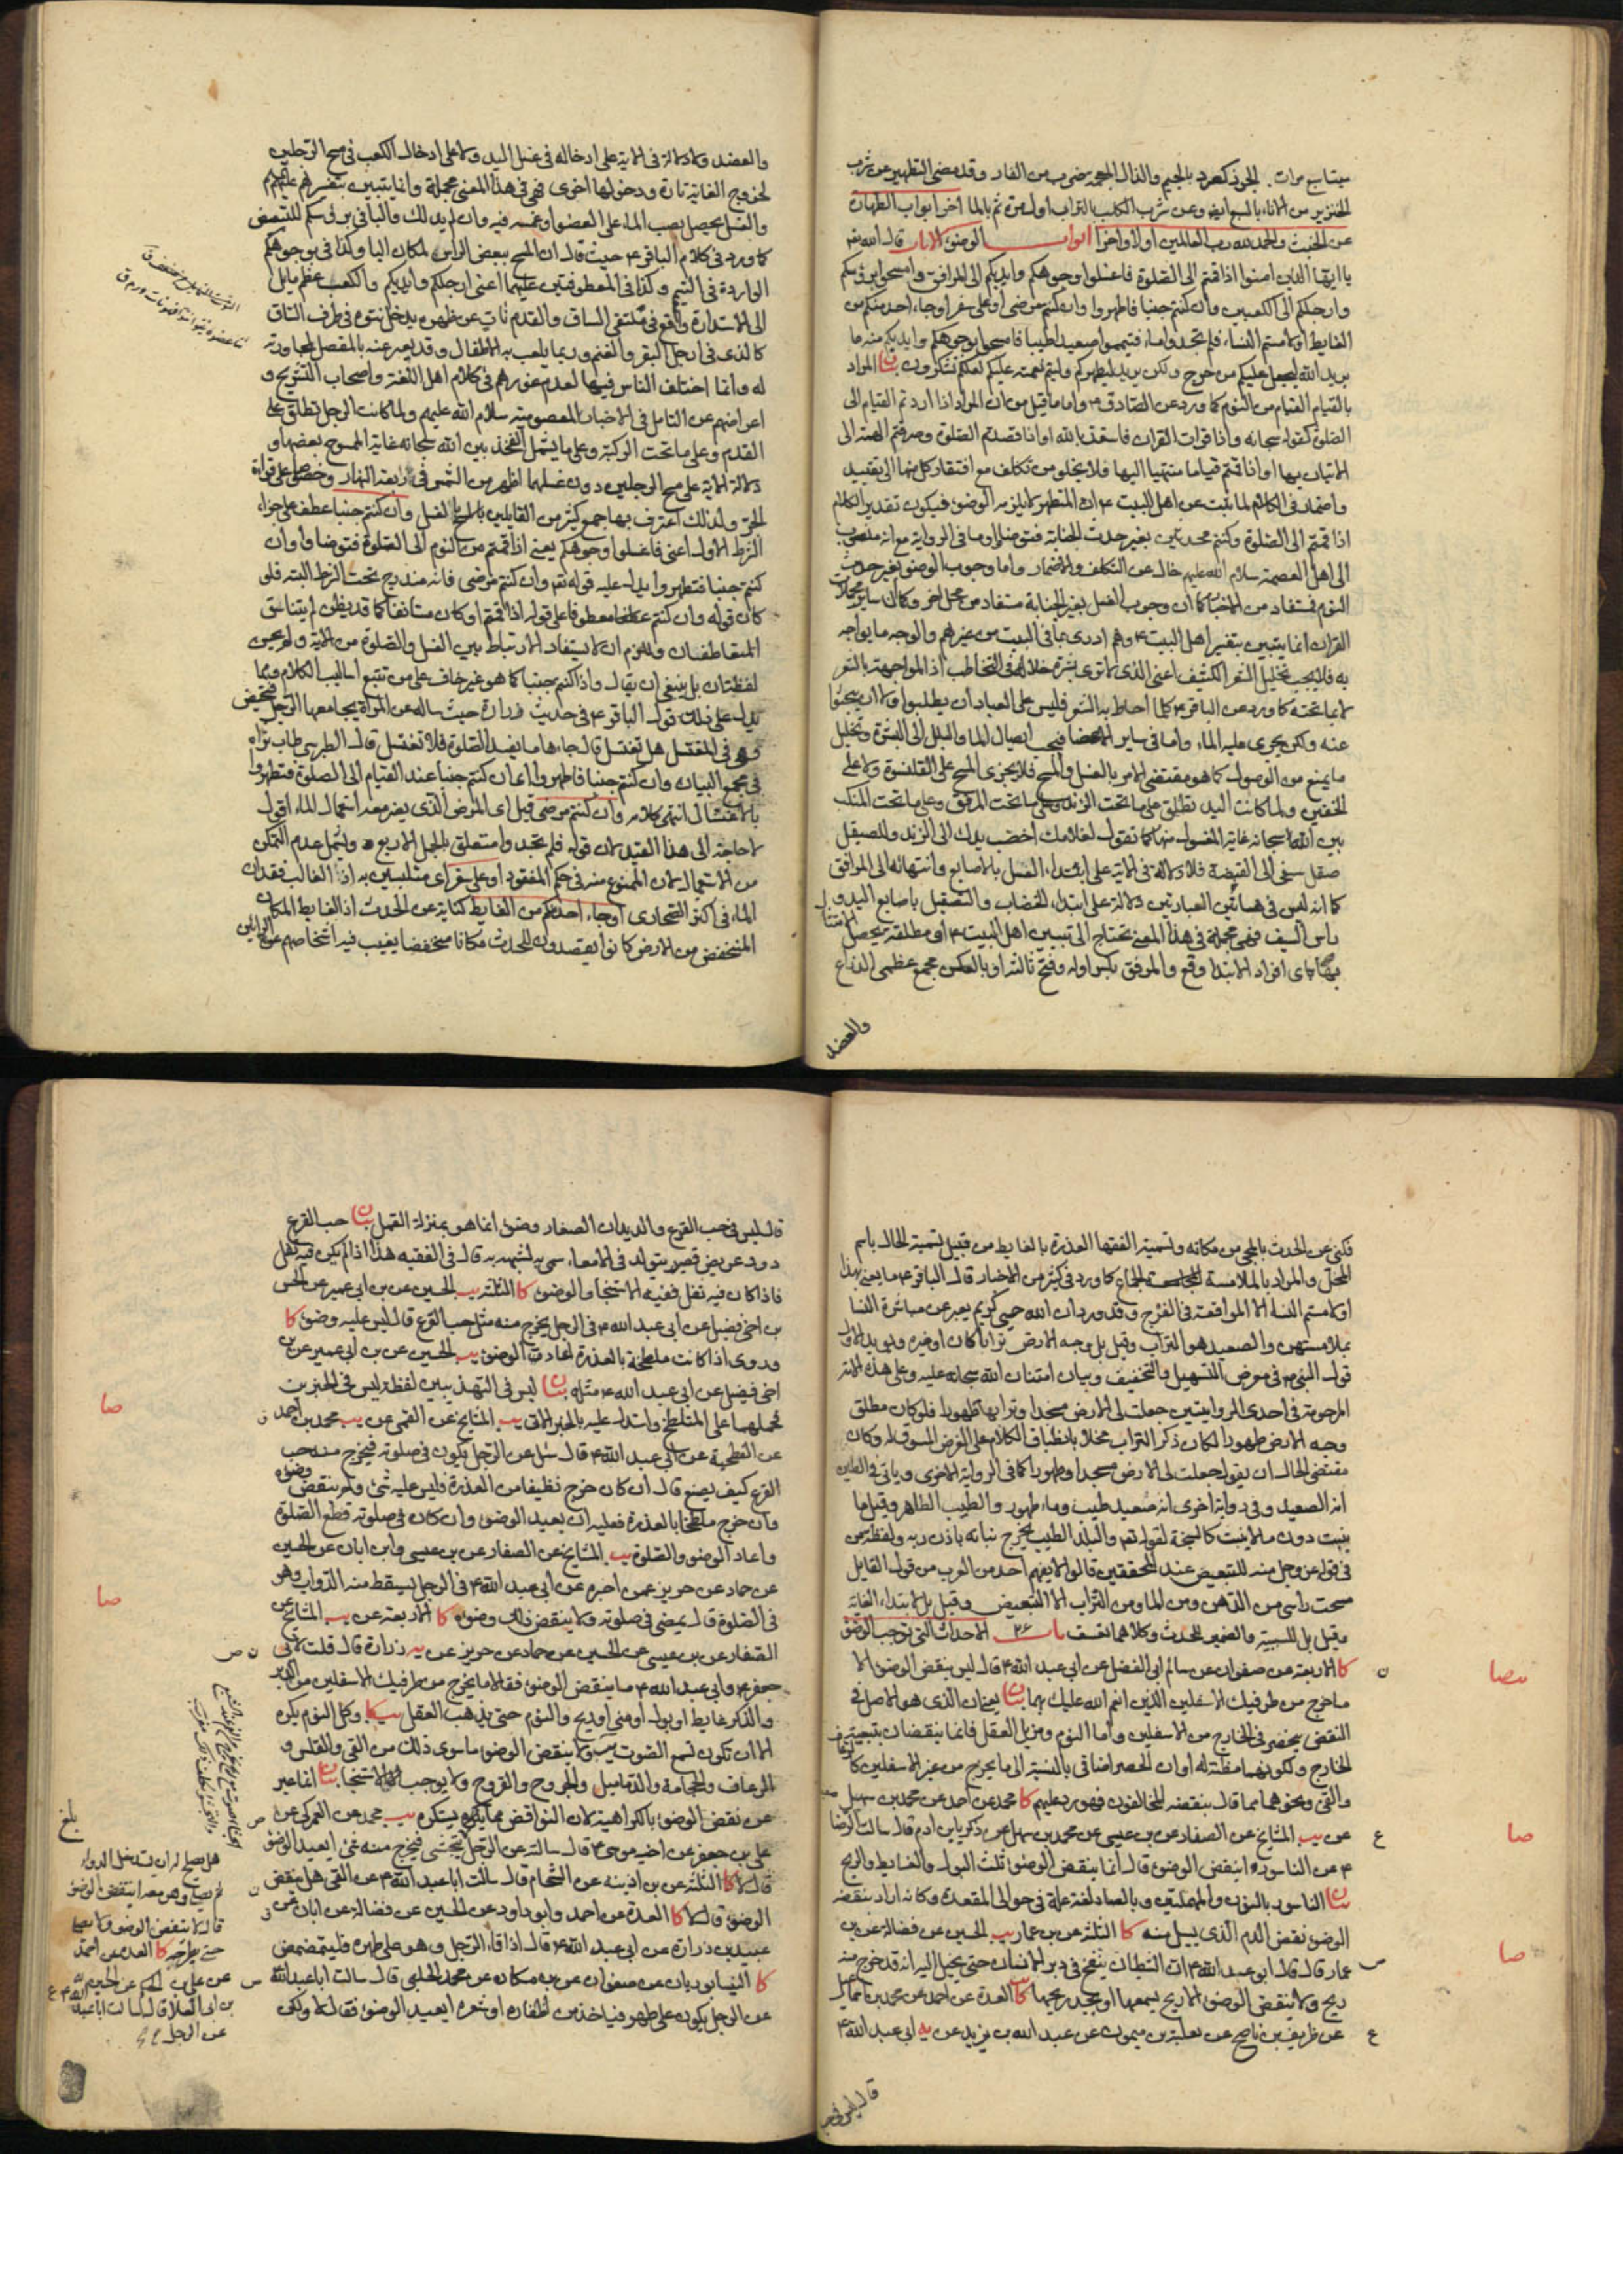 سيتا سبع مرات . الجرذ كصرد بالجيم والذال المعجمة ضرب من الفار و قد مضى التطهير من شرب
الخنزير من الاناء بالسبع ايضا وعن شرب الكلب بالتراب اول مرة ثم بالماء اخر ابواب الطهارة
عن الخبث والحمد لله رب العالمين اولا واخرا ابواب الوضوء الايات قال الله تعـ
يا ايها الذين امنوا اذا قمتم الى الصلوة فاغسلوا وجوهكم وايديكم الى المرافق وامسحوا برؤسكم
وارجلكم الى الكعبين وان كنتم جنبا فاطهروا وان كنتم مرضى او على سفر او جاء احد منكم من
الغايط او لامستم النساء فلم تجدوا ماء فتيمموا صعيدا طيبا فامسحوا بوجوهكم وايديكم منه ما
يريد الله ليجعل عليكم من حرج ولكن يريد ليطهركم وليتم نعمته عليكم لعلكم تشكرون بيان المراد
بالقيام القيام من النوم كما ورد عن الصادق ع واما ما قيل من ان المراد اذا اردتم القيام الى
الصلوة كقوله سبحانه واذا قرات القران فاستعذ بالله او اذا قصدتم الصلوة وصرفتم الهمة الى
الاتيان بها او اذا قمتم قياما منتهيا اليها فلا يخلو من تكلف مع افتقار كل منها الى تقييد
واضمار فى الكلام لما ثبت عن اهل البيت ع ان المتطهر لا يلزمه الوضوء فيكون تقدير الكلام
اذا قمتم الى الصلوة وكنتم محدثين بغير حدث الجنابة فتوضؤا وما فى الرواية مع انه منصوب
الى اهل العصمة سلام الله عليهم خال عن التكلف والاضمار واما وجوب الوضوء بغير حدث
النوم فمستفاد من الاخبار كما ان وجوب الغسل بغير الجنابة مستفاد من محل اخر وكما ان ساير مجملات
القران انما يتبين بتفسير اهل البيت ع وهم ادرى بما فى البيت من غيرهم والوجه ما يواجه
به فلا يجب تخليل الشعر الكثيف اعنى الذى لا ترى بشرة خلاله فى التخاطب اذ المواجهة بالشعر
لا بما تحته كما ورد عن الباقر ع كلما احاط به الشعر فليس على العباد ان يطلبوا ولا ان يبحثوا
عنه ولكن يجرى عليه الماء واما فى ساير الاعضا فيجب ايصال الماء والبلل الى البشرة وتخليل
ما يمنع من الوصول كما هو مقتضى الامر بالغسل والمسح فلا يجزى المسح على القلنسوة ولا على
الخفين ولما كانت اليد تطلق على ما تحت الزند وعلى ما تحت المرفق وعلى ما تحت المنكب
بين الله سبحانه غاية المغسول منها كما تقول لغلامك اخضب يدك الى الزند وللصيقل
صقل سيفى الى القبضة فلا دلالة فى الاية على ابتداء الغسل بالاصابع وانتهائه الى المرافق
كما انه ليس فى هاتين العبارتين دلالة على ابتداء الخضاب والتصقيل باصابع اليد و
راس السيف فهى مجملة فى هذا المعنى تحتاج الى تبيين اهل البيت ع او مطلقة يحصل الامتثال
بها باى افراد الابتداء وقع والمرفق بكسر اوله وفتح ثالثه او بالعكس مجمع عظمى الذراع
والعضد
والعضد ولا دلالة فى الاية على ادخاله فى غسل اليد ولا على ادخال الكعب فى مسح الرجلين
لخروج الغاية تارة ودخولها اخرى فهى فى هذا المعنى مجملة وانما يتبين بتفسيرهم عليهم
والغسل يحصل بصب الماء على العضو او غمسه فيه وان لم يدلك والباء فى برؤسكم للتبعيض
كما ورد فى كلام الباقر ع حيث قال ان المسح ببعض الراس لمكان الباء وكذا فى بوجوهكم
الواردة فى التيمم وكذا فى المعطوفتين عليهما اعنى ارجلكم وايديكم والكعب عظم مايل
الى الاستدارة واقع فى ملتقى الساق والقدم نات عن ظهره يدخل نتوه فى طرف الساق
كالذى فى ارجل البقر والغنم وربما يلعب به الاطفال وقد يعبر عنه بالمفصل لمجاورته
له وانما اختلف الناس فيها لعدم غورهم فى كلام اهل اللغة واصحاب التشريح و
اعراضهم عن التامل فى الاخبار المعصومية سلام الله عليهم ولما كانت الرجل تطلق على
القدم وعلى ما تحت الركبة وعلى ما يشمل الفخذ بين الله سبحانه غاية الممسوح بعضها و
دلالة الاية على مسح الرجلين دون غسلهما اظهر من الشمس فى رابعة النهار وخصوصا على قراءة
الجر ولذلك اعترف بها جمع كثير من القايلين بالغسل وان كنتم جنبا عطف على جزاء
الشرط الاول اعنى فاغسلوا وجوهكم يعنى اذا قمتم من النوم الى الصلوة فتوضاوا وان
كنتم جنبا فتطهروا يدل عليه قوله تعـ وان كنتم مرضى فانه مندرج تحت الشرط البتة فلو
كان قوله وان كنتم عطفا معطوفا على قوله اذا قمتم او كان مستانفا كما قد يظن لم يتناسق
المتعاطفان وللزم ان لا يستفاد الارتباط بين الغسل والصلوة من الاية ولم يحسن
لفظتان بل ينبغى ان يقال واذا كنتم جنبا كما هو غير خاف على من تتبع اساليب الكلام ومما
يدل على ذلك قول الباقر ع فى حديث زرارة حيث ساله عن المراة يجامعها الرجل فتحيض
وهى فى المغتسل هل تغتسل قال جاءها ما يفسد الصلوة فلا تغتسل قال الطبرسى طاب ثراه
فى مجمع البيان وان كنتم جنبا فاطهروا اى ان كنتم جنبا عند القيام الى الصلوة فتطهروا
بالاغتسال انتهى كلامه وان كنتم مرضى قيل اى المرض الذى يضر معه استعمال الماء اقول
لا حاجة الى هذا القيد لان قوله فلم تجدوا متعلق بالجمل الاربع و يشمل عدم التمكن
من الاستعمال لان الممنوع منه فى حكم المفقود او على سفر اى متلبسين به اذ الغالب فقدان
الماء فى اكثر الصحارى او جاء احدكم من الغايط كناية عن الحدث اذ الغايط المكان
المنخفض من الارض كانوا يقصدون للحدث مكانا منخفضا يغيب فيه اشخاصهم عن الرائين
فكنى عن الحدث بالمجئ من مكانه وتسمية الفقها العذرة بالغايط من قبيل تسمية الحال باسم
المحل والمراد بالملامسة الجماع كما ورد فى كثير من الاخبار قال الباقر ع ما يعنى بهذا
او لامستم النساء الا المواقعة فى الفرج وقد ورد ان الله حيى كريم يعبر عن مباشرة النسا
بملامستهن والصعيد هو التراب وقيل بل وجه الارض ترابا كان او غيره ويؤيد الاول
قول النبى ص فى معرض التسهيل والتخفيف وبيان امتنان الله سبحانه عليه وعلى هذه الامة
المرحومة فى احدى الروايتين جعلت لى الارض مسجدا وترابها طهورا فلو كان مطلق
وجه الارض طهورا لكان ذكر التراب مخلا بانطباق الكلام على الغرض المسوق له وكان
مقتضى الحال ان يقول جعلت لى الارض مسجدا وطهورا كما فى الرواية الاخرى وياتى فى الطين
انه الصعيد وفى رواية اخرى انه صعيد طيب وماء طهور والطيب الطاهر وقيل ما
ينبت دون ما لا ينبت كالسبخة لقوله تعـ والبلد الطيب يخرج نباته باذن ربه ولفظة من
فى قوله عز وجل منه للتبعيض عند المحققين قالوا لا يفهم احد من العرب من قول القايل
مسحت راسى من الدهن ومن الماء ومن التراب الا التبعيض وقيل بل لابتداء الغاية
وقيل بل للسببية والضمير للحدث وكلاهما تعسف باب ٢٤ الاحداث التى توجب الوضوء
كا الاربعة عن صفوان عن سالم ابى الفضل عن ابى عبد الله ع قال ليس ينقض الوضوء الا
ما خرج من طرفيك الاسفلين الذين انعم الله عليك بهما بيان يعنى ان الذى هو الاصل فى
النقض ينحصر فى الخارج من الاسفلين واما النوم ومزيل العقل فانما ينقضان بتبعيته
الخارج ولكونهما مظنة له او ان الحصر اضافى بالنسبة الى ما يخرج من غير الاسفلين كالرعاف
والقى ونحوهما مما قال بنقضه المخالفون فهو رد عليهم كا محمد عن احمد عن محمد بن سهل
عن يب المشايخ عن الصفار عن بن عيسى عن محمد بن سهل عن زكريا بن ادم قال سالت الرضا
ع عن الناسور اينقض الوضوء قال انما ينقض الوضوء ثلث البول والغايط والريح
بيان الناسور بالنون والمهملتين وبالصاد لغة علة فى حوالى المقعدة وكانه اراد بنقضه
الوضوء نقض الدم الذى يسيل منه كا الثلثة عن بن عمار يب الحسين عن فضالة عن بن
عمار قال قال ابو عبد الله ع ان الشيطان ينفخ فى دبر الانسان حتى يخيل اليه انه قد خرج منه
ريح ولا ينقض الوضوء الا ريح يسمعها او يجد ريحها كا العدة عن احمد عن محمد بن اسمعيل
عن ظريف بن ناصح عن ثعلبة بن ميمون عن عبد الله بن يزيد عن يه ابى عبد الله ع
قال ليس فى حب
قال ليس فى حب القرع والديدان الصغار وضوء انما هو بمنزلة القمل بيان حب القرع
دود عريض قصير يتولد فى الامعاء سمى به لشبهه به قال فى الفقيه هذا اذا لم يكن فيه ثفل
فاذا كان فيه ثفل ففيه الاستنجا والوضوء كا الثلثة يب الحسين عن بن ابى عمير عن
بن اخى فضيل عن ابى عبد الله ع فى الرجل يخرج منه مثل حب القرع قال ليس عليه وضوء كا
وروى اذا كانت ملطخة بالعذرة اعاد الوضوء يب الحسين عن بن ابى عمير عن بن
اخى فضيل عن ابى عبد الله ع مثله بيان ليس فى التهذيبين لفظة ليس فى الخبرين
فحملهما على المتلطخ واستدل عليه بالخبر الاتى يب المشايخ عن القمى عن يب محمد بن احمد
عن الفطحية عن ابى عبد الله ع قال سئل عن الرجل يكون فى صلوته فيخرج منه حب
القرع كيف يصنع قال ان كان خرج نظيفا من العذرة فليس عليه شئ ولم ينقض وضوءه
وان خرج ملطخا بالعذرة فعليه ان يعيد الوضوء وان كان فى صلوته قطع الصلوة
واعاد الوضوء والصلوة يب المشايخ عن الصفار عن بن عيسى وابن ابان عن الحسين
عن حماد عن حريز عمن اخبره عن ابى عبد الله ع فى الرجل يسقط منه الدواب وهو
فى الصلوة قال يمضى فى صلوته ولا ينقض ذلك وضوءه كا الاربعة عن يب المشايخ عن
الصفار عن بن عيسى عن الحسين عن حماد عن حريز عن يه زرارة قال قلت لابى
جعفر ع وابى عبد الله ع ما ينقض الوضوء فقالا ما يخرج من طرفيك الاسفلين من الدبر
والذكر غايط او بول او منى او ريح والنوم حتى يذهب العقل كا وكل النوم يكره
الا ان تكون تسمع الصوت يب ولا ينقض الوضوء ما سوى ذلك من القى والقلس و
الرعاف والحجامة والدماميل والجروح والقروح ولا يوجب الاستنجا بيان انما عبر
عن نقض الوضوء بالكراهية لان النواقض مما يكره ويستكره يب محمد عن العمركى عن
على بن جعفر عن اخيه موسى ع قال سالته عن الرجل يتجشى فيخرج منه شئ ايعيد الوضوء
قال لا كا الثلثة عن بن اذينه عن الشحام قال سالت ابا عبد الله ع عن القى هل ينقض
الوضوء قال لا كا العدة عن احمد وابو داود عن الحسين عن فضالة عن ابان عن
عبيد بن زرارة عن ابى عبد الله ع قال اذا قاء الرجل وهو على طهر فليتمضمض
كا النيسابوريان عن صفوان عن بن مسكان عن محمد الحلبى قال سالت ابا عبد الله ع
عن الرجل يكون على طهر فياخذ من اظفاره او شعره ايعيد الوضوء فقال لا ولكن
بلغ
هل يصلح له ان يستدخل الدواء
ثم يصلى وهو معه اينقض الوضوء
قال لا ينقض الوضوء ولا يصلى
حتى يطرحه كا العدة عن احمد
عن على بن الحكم عن الحسين
بن ابى العلا قال سالت ابا عبد الله ع
عن الرجل
صا
صا
صا
صا
صا